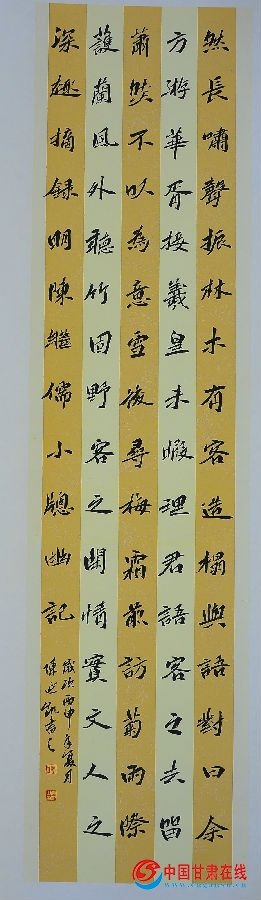 然長嘯聲振林木有客造榻與語對曰余
方游華胥接羲皇未暇理君語客之去留
蕭然不以為意雪後尋梅霜前訪菊雨際
護蘭風外聽竹固野客之閒情實文人之
深趣摘録明陳繼儒小窗幽記
歲次丙申年夏月
陳
書之
中国甘肃在线